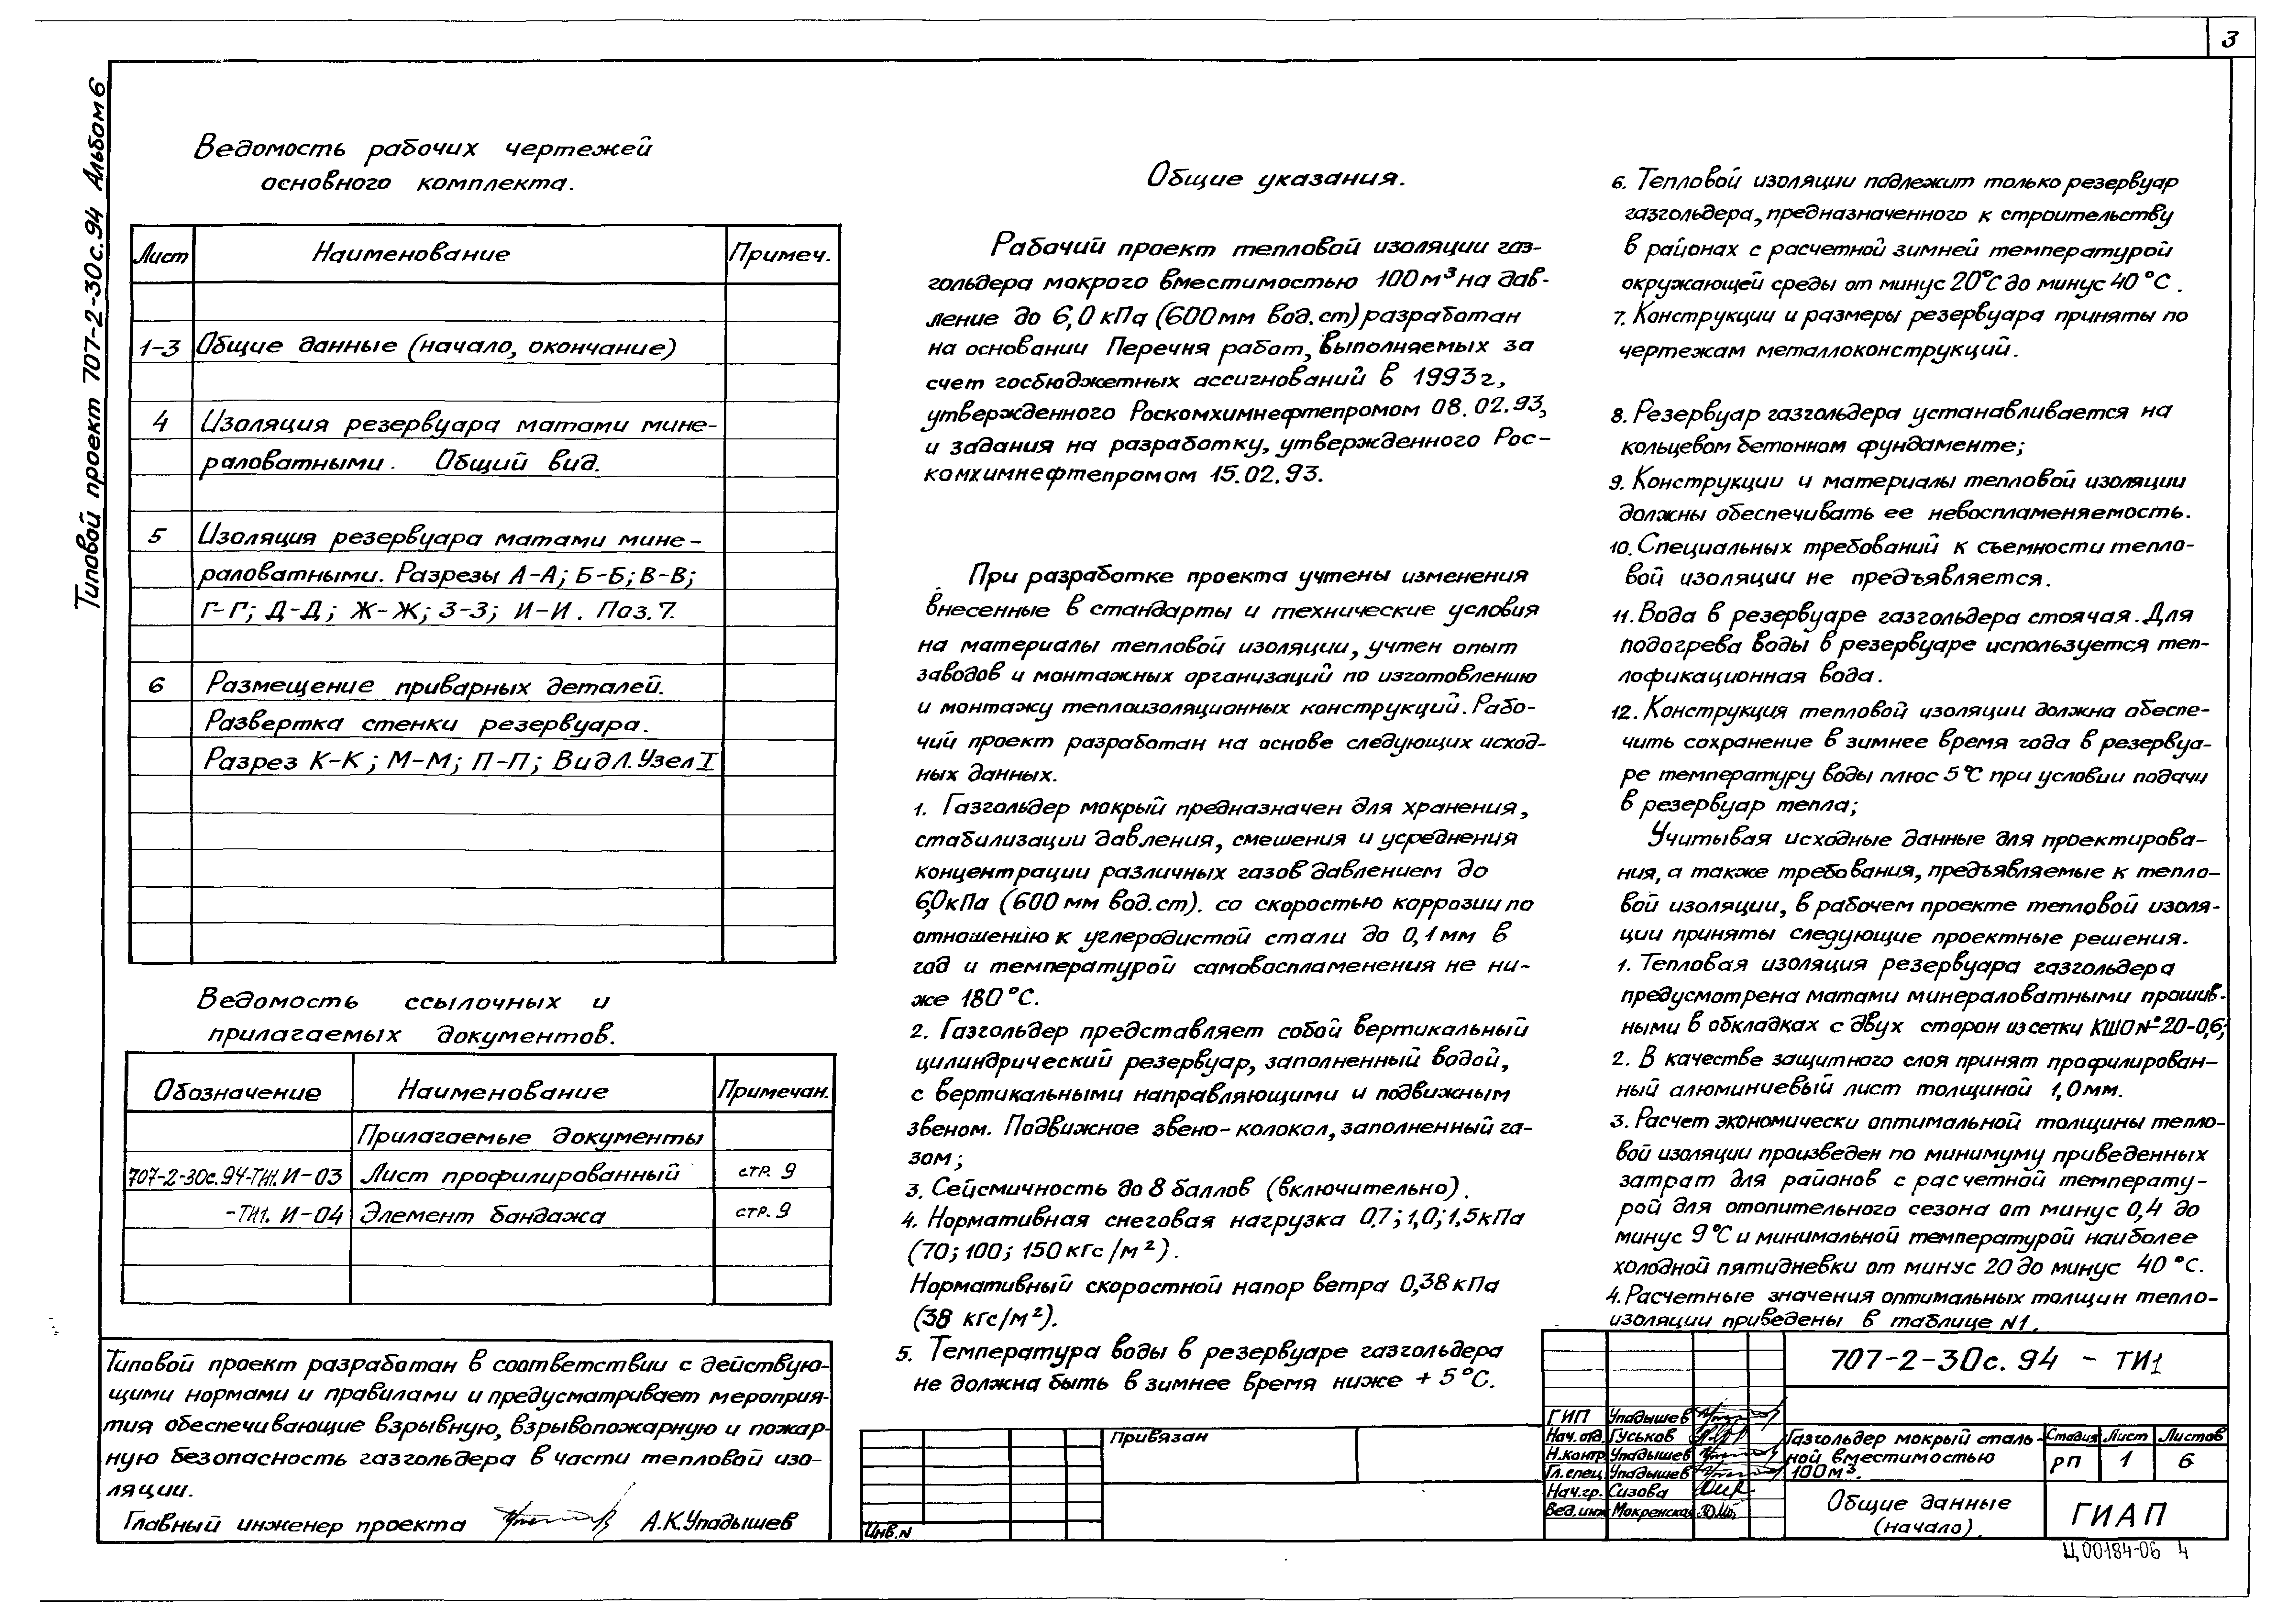 3
Типовой проект 707-2-30с.94 Альбом 6
Ведомость рабочих чертежей
основного комплекта.
Лист Наименование Примеч.
1-3 Общие данные (начало, окончание)
4 Изоляция резервуара матами мине-
раловатными. Общий вид.
5 Изоляция резервуара матами мине-
раловатными. Разрезы А-А; Б-Б; В-В;
Г-Г; Д-Д; Ж-Ж; З-З; И-И. Поз.7.
6 Размещение приварных деталей.
Развертка стенки резервуара.
Разрез К-К; М-М; П-П; Вид Л. Узел I
Ведомость ссылочных и
прилагаемых документов.
Обозначение Наименование Примечан.
Прилагаемые документы
707-2-30с.94-ТИ1.И-03 Лист профилированный стр. 9
-ТИ1. И-04 Элемент бандажа стр. 9
Типовой проект разработан в соответствии с действую-
щими нормами и правилами и предусматривает мероприя-
тия обеспечивающие взрывную, взрывопожарную и пожар-
ную безопасность газгольдера в части тепловой изо-
ляции.
Главный инженер проекта А.К.Упадышев
Общие указания.
Рабочий проект тепловой изоляции газ-
гольдера мокрого вместимостью 100 м³ на дав-
ление до 6,0 кПа (600 мм вод.ст) разработан
на основании Перечня работ, выполняемых за
счет госбюджетных ассигнований в 1993 г,
утвержденного Роскомхимнефтепромом 08.02.93,
и задания на разработку, утвержденного Рос-
комхимнефтепромом 15.02.93.
При разработке проекта учтены изменения
внесенные в стандарты и технические условия
на материалы тепловой изоляции, учтен опыт
заводов и монтажных организаций по изготовлению
и монтажу теплоизоляционных конструкций. Рабо-
чий проект разработан на основе следующих исход-
ных данных.
1. Газгольдер мокрый предназначен для хранения,
стабилизации давления, смешения и усреднения
концентрации различных газов давлением до
6,0 кПа (600 мм вод.ст). со скоростью коррозии по
отношению к углеродистой стали до 0,1 мм в
год и температурой самовоспламенения не ни-
же 180°С.
2. Газгольдер представляет собой вертикальный
цилиндрический резервуар, заполненный водой,
с вертикальными направляющими и подвижным
звеном. Подвижное звено-колокол, заполненный га-
зом;
3. Сейсмичность до 8 баллов (включительно).
4. Нормативная снеговая нагрузка 0,7; 1,0; 1,5 кПа
(70; 100; 150 кгс/м²).
Нормативный скоростной напор ветра 0,38 кПа
(38 кгс/м²).
5. Температура воды в резервуаре газгольдера
не должна быть в зимнее время ниже +5°С.
6. Тепловой изоляции подлежит только резервуар
газгольдера, предназначенного к строительству
в районах с расчетной зимней температурой
окружающей среды от минус 20°С до минус 40°С.
7. Конструкции и размеры резервуара приняты по
чертежам металлоконструкций.
8. Резервуар газгольдера устанавливается на
кольцевом бетонном фундаменте;
9. Конструкции и материалы тепловой изоляции
должны обеспечивать ее невоспламеняемость.
10. Специальных требований к съемности тепло-
вой изоляции не предъявляется.
11. Вода в резервуаре газгольдера стоячая. Для
подогрева воды в резервуаре используется теп-
лофикационная вода.
12. Конструкция тепловой изоляции должна обеспе-
чить сохранение в зимнее время года в резервуа-
ре температуру воды плюс 5°С при условии подачи
в резервуар тепла;
Учитывая исходные данные для проектирова-
ния, а также требования, предъявляемые к тепло-
вой изоляции, в рабочем проекте тепловой изоля-
ции приняты следующие проектные решения.
1. Тепловая изоляция резервуара газгольдера
предусмотрена матами минераловатными прошив-
ными в обкладках с двух сторон из сетки КШО №20-0,6;
2. В качестве защитного слоя принят профилирован-
ный алюминиевый лист толщиной 1,0 мм.
3. Расчет экономически оптимальной толщины тепло-
вой изоляции произведен по минимуму приведенных
затрат для районов с расчетной температу-
рой для отопительного сезона от минус 0,4 до
минус 9°С и минимальной температурой наиболее
холодной пятидневки от минус 20 до минус 40°С.
4. Расчетные значения оптимальных толщин тепло-
изоляции приведены в таблице N1.
Привязан
Инв.N
707-2-30с.94 - ТИ1
ГИП Упадышев
Нач.отд. Гуськов
Н.контр. Упадышев
Гл.спец. Упадышев
Нач.гр. Сизова
Вед.инж Макренская
Газгольдер мокрый сталь-
ной вместимостью
100 м³.
Стадия Лист Листов
РП 1 6
Общие данные
(начало).
ГИАП
Ц00184-06 4